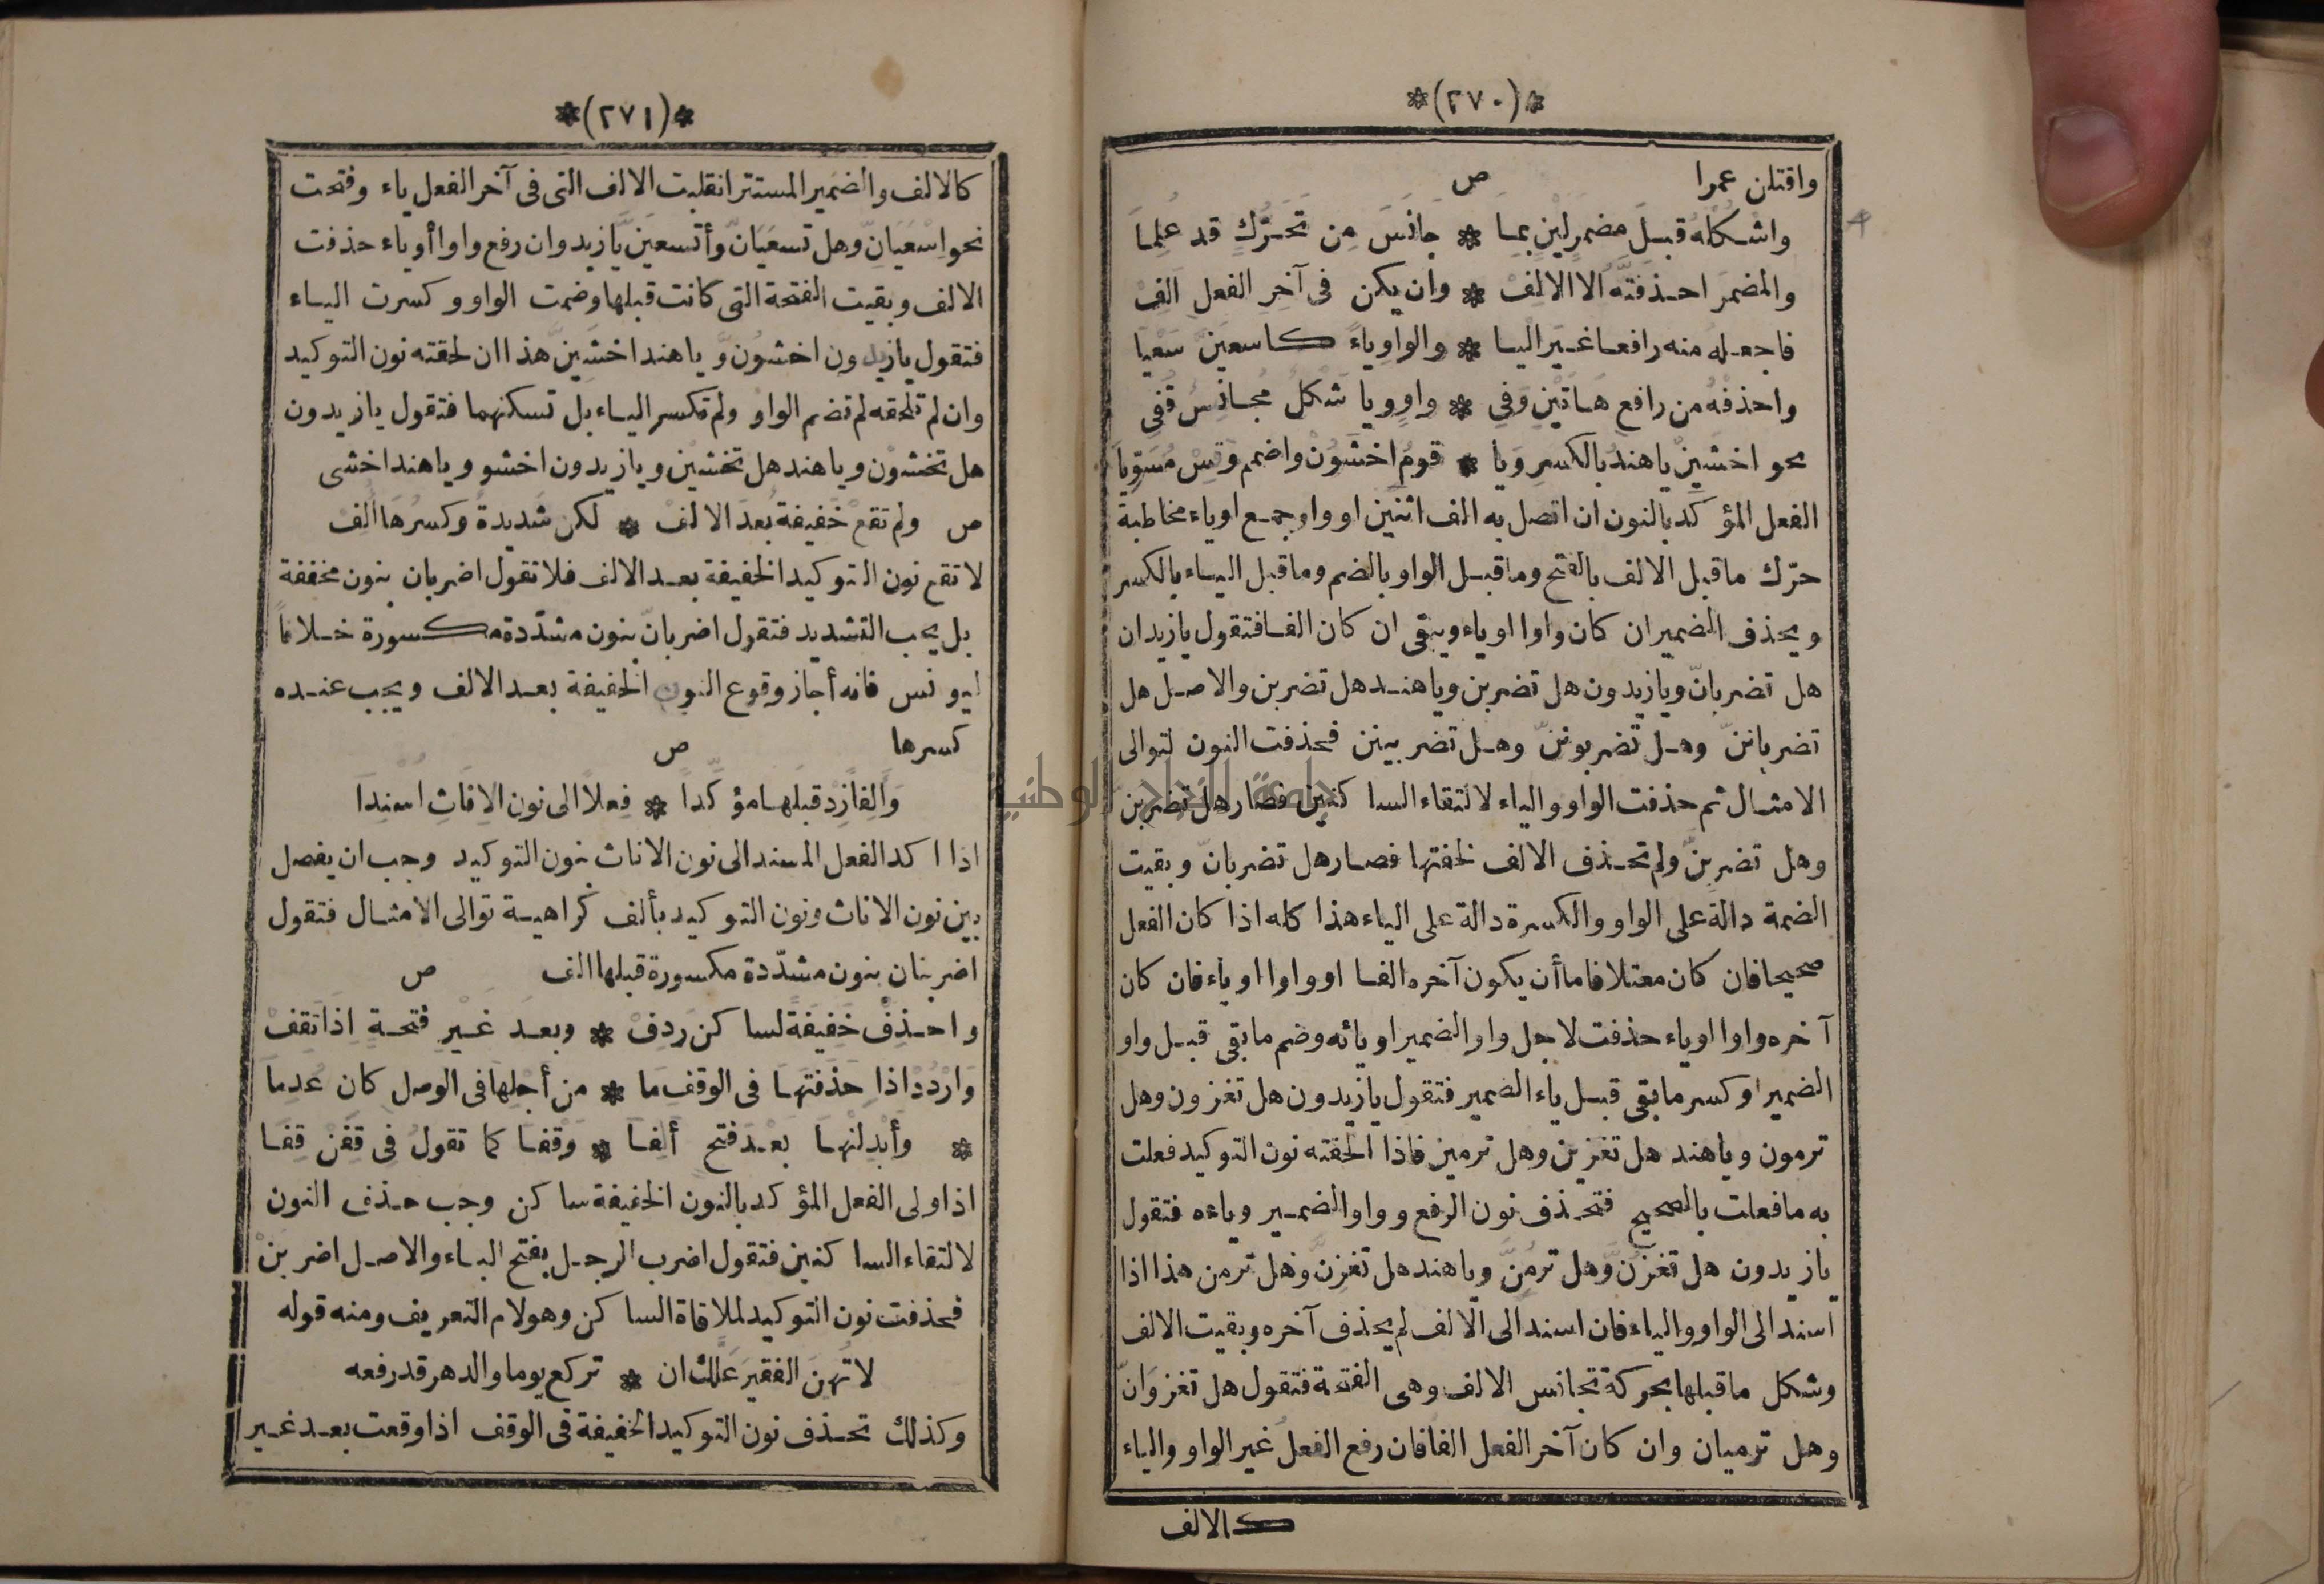 *(٢٧٠)*
واقتلن عمرا ص
واشكله قبل مضمر لين بما * جانس من تحرك قد علما
والمضمر احذفنه الا الالف * وان يكن فى آخر الفعل الف
فاجعله منه رافعا غير اليا * والواو ياء كاسعين سعيا
واحذفه من رافع هاتين وفى * واو ويا شكل مجانس قفى
نحو اخشين يا هند بالكسر ويا * قوم اخشون واضمم وقس مسويا
الفعل المؤكد بالنون ان اتصل به الف اثنين او واو جمع او ياء مخاطبة
حرّك ما قبل الالف بالفتح وما قبل الواو بالضم وما قبل الياء بالكسر
ويحذف الضمير ان كان واوا او ياء ويبقى ان كان الفا فتقول يازيدان
هل تضربانّ ويازيدون هل تضربن وياهند هل تضربن والاصل هل
تضرباننّ وهل تضربوننّ وهل تضربينن فحذفت النون لتوالى
الامثال ثم حذفت الواو والياء لالتقاء الساكنين فصار هل تضربن
وهل تضربنّ ولم تحذف الالف لخفتها فصار هل تضربانّ وبقيت
الضمة دالة على الواو والكسرة دالة على الياء هذا كله اذا كان الفعل
صحيحا فان كان معتلا فاما أن يكون آخره الفا او واوا او ياء فان كان
آخره واوا او ياء حذفت لاجل واو الضمير او يائه وضم ما بقى قبل واو
الضمير او كسر ما بقى قبل ياء الضمير فتقول يازيدون هل تغزون وهل
ترمون وياهند هل تغزين وهل ترمين فاذا الحقته نون التوكيد فعلت
به ما فعلت بالصحيح فتحذف نون الرفع وواو الضمير وياءه فتقول
يازيدون هل تغزنّ وهل ترمنّ وياهند هل تغزنّ وهل ترمن هذا اذا
اسند الى الواو والياء فان اسند الى الالف لم يحذف آخره وبقيت الالف
وشكل ما قبلها بحركة تجانس الالف وهى الفتحة فتقول هل تغزوانّ
وهل ترميان وان كان آخر الفعل الفا فان رفع الفعل غير الواو والياء
كالالف
*(٢٧١)*
كالالف والضمير المستتر انقلبت الالف التى فى آخر الفعل ياء وفتحت
نحو اسعيانّ وهل تسعيانّ وأتسعينّ يازيد وان رفع واوا أو ياء حذفت
الالف وبقيت الفتحة التى كانت قبلها وضمت الواو وكسرت الياء
فتقول يازيدون اخشونّ وياهند اخشينّ هذا ان لحقته نون التوكيد
وان لم تلحقه لم تضم الواو ولم تكسر الياء بل تسكنهما فتقول يازيدون
هل تخشون وياهند هل تخشين ويازيدون اخشو وياهند اخشى
ص ولم تقع خفيفة بعد الالف * لكن شديدة وكسرها ألف
لا تقع نون التوكيد الخفيفة بعد الالف فلا تقول اضربان بنون مخففة
بل يجب التشديد فتقول اضربانّ بنون مشدّدة مكسورة خلافاً
ليونس فانه أجاز وقوع النون الخفيفة بعد الالف ويجب عنده
كسرها ص
وألفا زد قبلها مؤكدا * فعلا الى نون الاناث اسندا
اذا اكد الفعل المسند الى نون الاناث بنون التوكيد وجب ان يفصل
بين نون الاناث ونون التوكيد بألف كراهية توالى الامثال فتقول
اضربنان بنون مشدّدة مكسورة قبلها الف ص
واحذف خفيفة لساكن ردف * وبعد غير فتحة اذا تقف
واردد اذا حذفتها فى الوقف ما * من أجلها فى الوصل كان عدما
* وأبدلنها بعد فتح ألفا * وقفا كما تقول فى قفن قفا
اذا ولى الفعل المؤكد بالنون الخفيفة ساكن وجب حذف النون
لالتقاء الساكنين فتقول اضرب الرجل بفتح الباء والاصل اضربن
فحذفت نون التوكيد لملاقاة الساكن وهو لام التعريف ومنه قوله
لا تهن الفقير علك ان * تركع يوما والدهر قد رفعه
وكذلك تحذف نون التوكيد الخفيفة فى الوقف اذا وقعت بعد غير
جامعة النجاح الوطنية